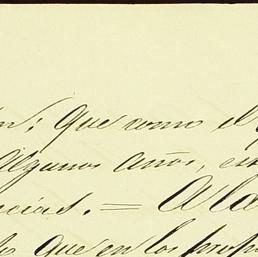 que como el
Algunos años,
cias. = A la
que en los prop